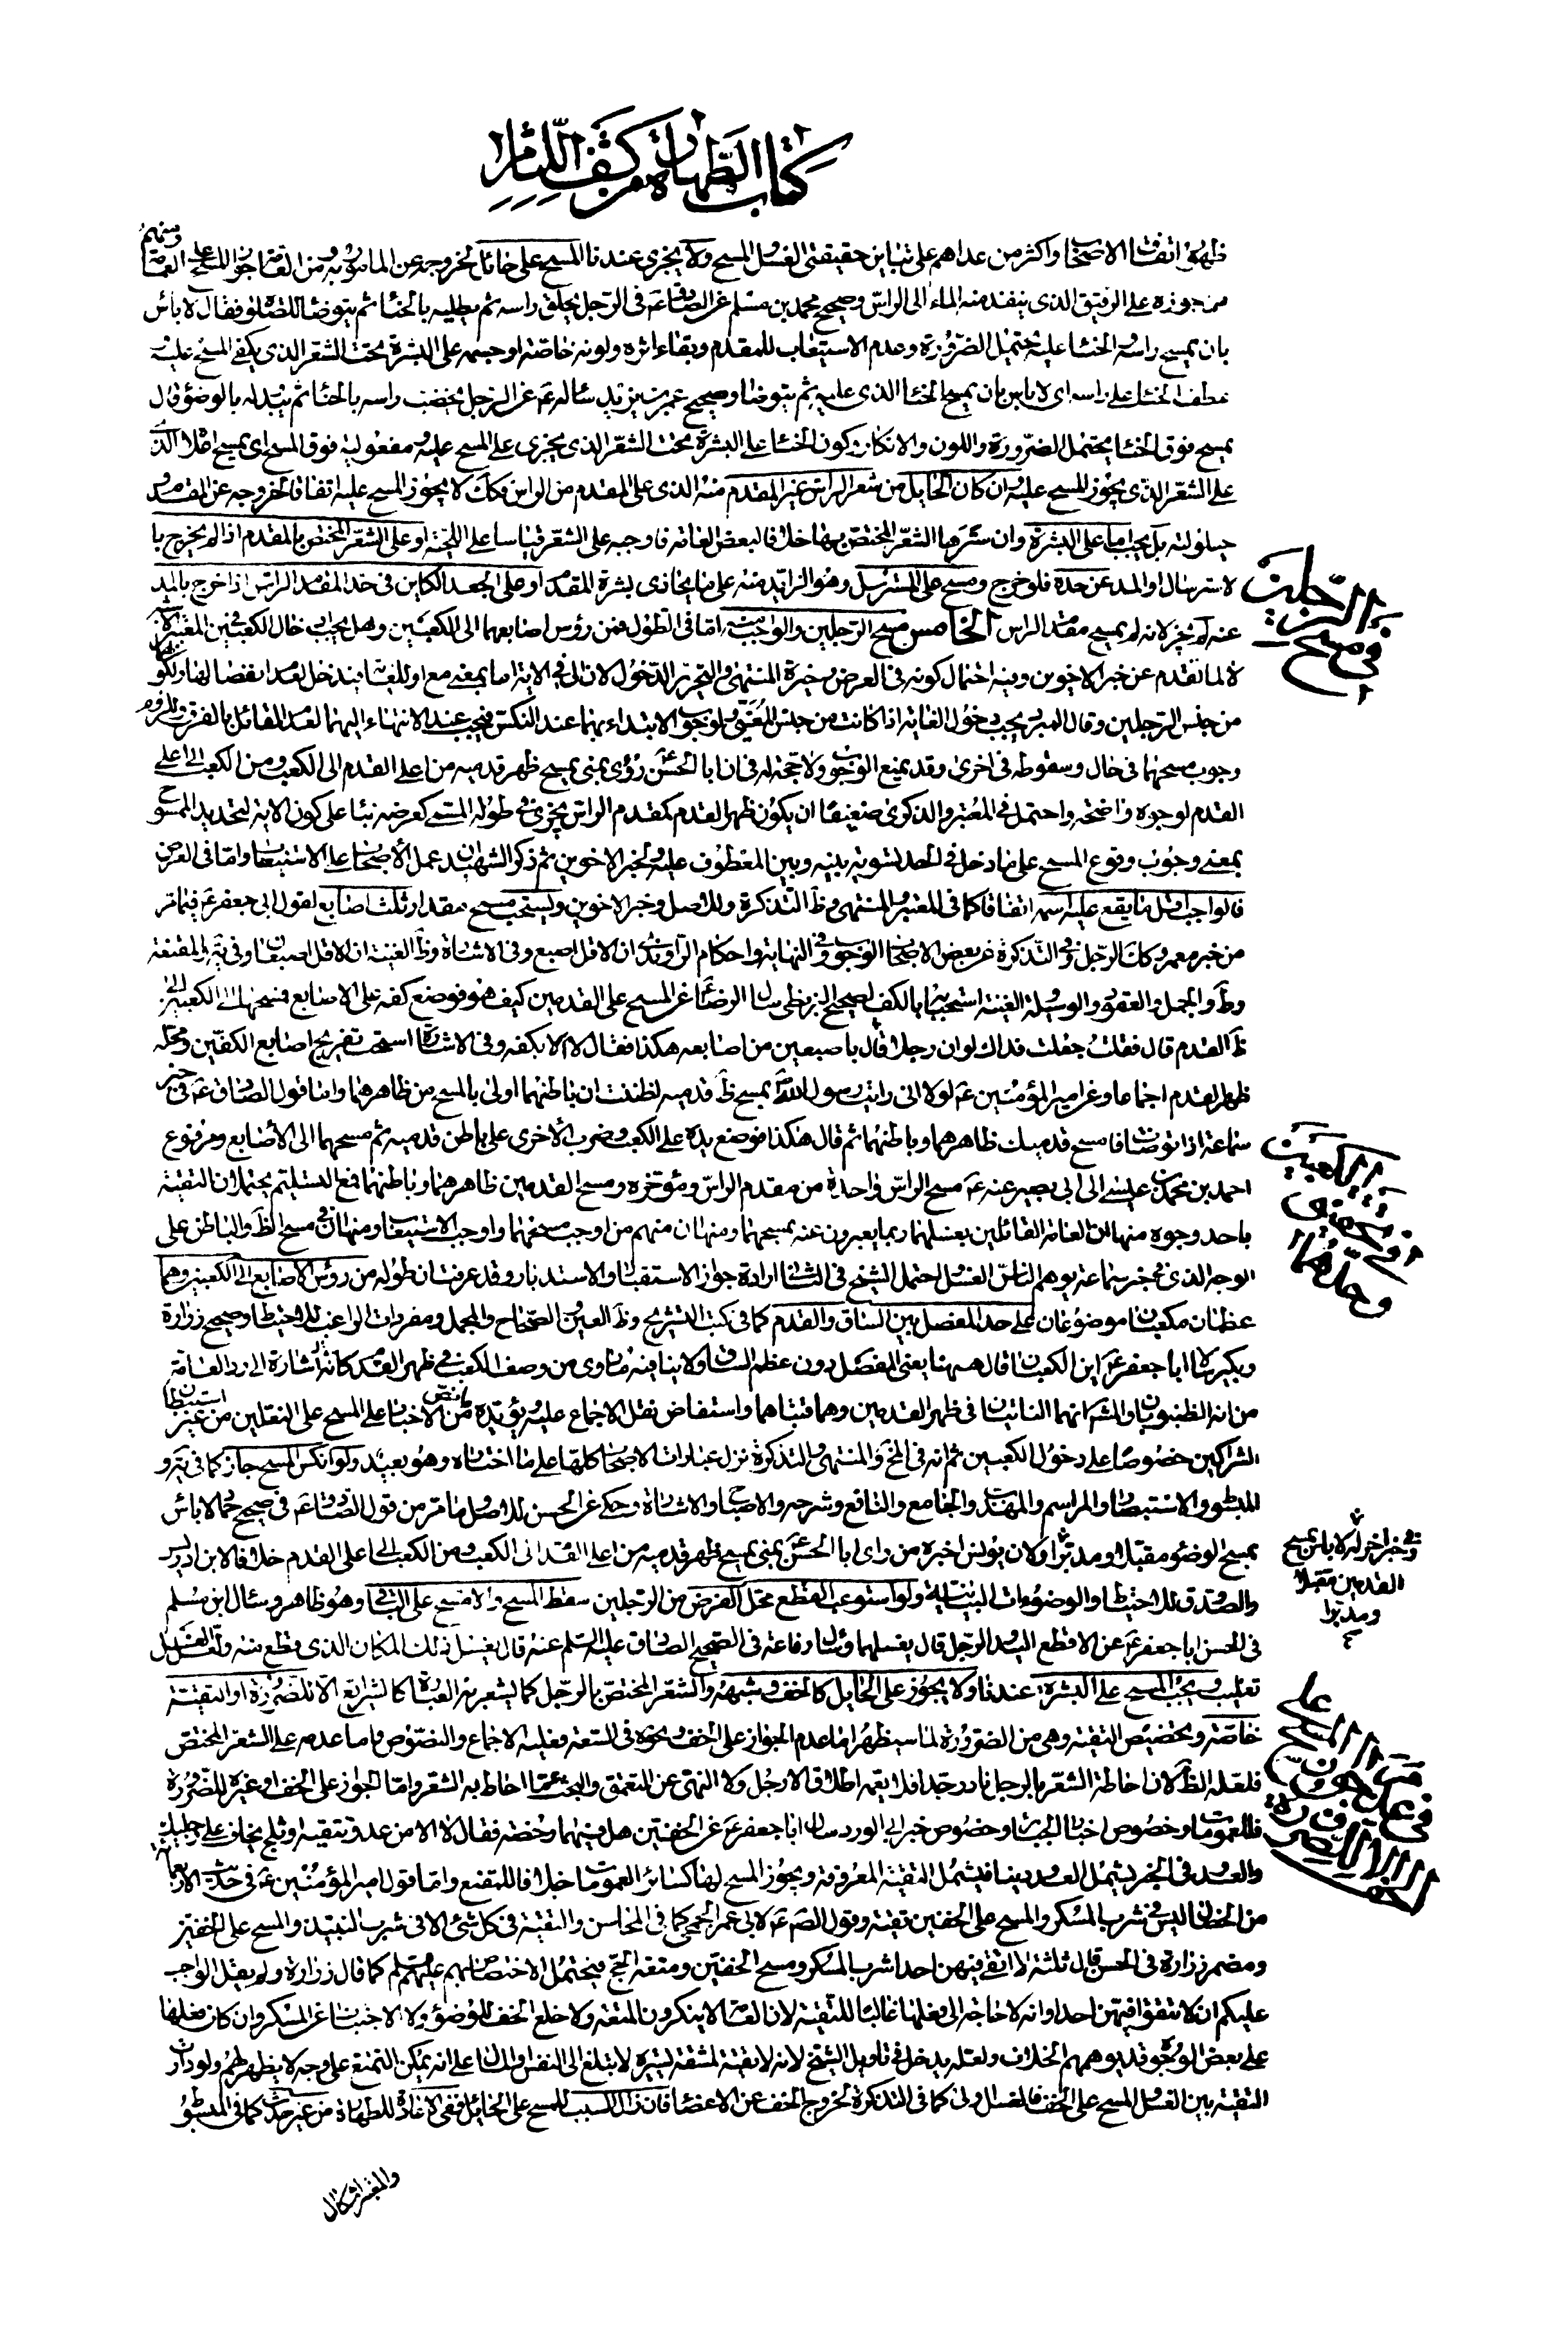 كتاب الطهارة من كشف اللثام
ظهور اتفاق الاصحاب واكثر من عداهم على تباين حقيقتى الغسل والمسح ولا يجزى عندنا المسح على حائل لخروجه عن المامور به ومن العامة من جوز المسح على العمامة ومنهم
من جوزه على الرقيق الذى ينفذ منه الماء الى الراس وصحيح محمد بن مسلم عن الصادق ع فى الرجل يحلق راسه ثم يطليه بالحناء ثم يتوضا للصلوة فقال لا باس
بان يمسح راسه والحناء عليه يحتمل الضرورة وعدم الاستيعاب للمقدم وبقاء اثره ولونه خاصة او جسمه على البشرة تحت الشعر الذى يكفى المسح عليه
على راسه اى لا باس بان يمسح الحناء الذى عليه ثم يتوضا وصحيح عمر بن يزيد ساله ع عن الرجل يخضب راسه بالحناء ثم يبدو له بالوضوء قال
يمسح فوق الحناء يحتمل الضرورة واللون والانكار وكون الحناء على البشرة تحت الشعر الذى يجزى على المسح عليه ومفعولية فوق للمسح اى يمسح
على الشعر الذى يجوز المسح عليه وان كان الحايل من شعر الراس غير المقدم منه الذى على المقدم من الراس فكك لا يجوز المسح عليه اتفاقا لخروجه عن المقدم و
حيلولته بل يجب اما على البشرة وان سترها الشعر المختص بها خلافا لبعض العامة فاوجبه على الشعر قياسا على اللحية او على الشعر المختص بالمقدم اذا لم يخرج با
لاسترسال او المد عن حده فلو خرج ومسح على المسترسل وهو الزايد منه على ما يحاذى بشرة المقدم او على الجعد الكاين فى حد المقدم الراس اذا خرج بالمد
عنه لم يجز لانه لم يمسح مقدم الراس الخامس مسح الرجلين والواجب منه اما فى الطول فمن رؤس اصابعهما الى الكعبين وهل يجب ادخال الكعبين فى المعتبر لا
لا لما تقدم عن خبر الاخوين وفيه احتمال كونه فى العرض وخيرة المنتهى والتحرير الدخول لان الى فى الاية اما بمعنى مع او للغاية فيدخل لعدم انفصالها ولكو
من جنس الرجلين وقال المبرد يجب دخول الغاية اذا كانت من جنس المغيى ولوجوب الابتداء بهما عند النكس فيجب عند الانتهاء اليهما لعدم القائل بالفرق وللزوم
وجوب مسحهما فى حال وسقوطه فى اخرى وقد يمنع الوجوب ولا حجة له فى ان ابا الحسن ع رؤى بمنى يمسح ظهر قدميه من اعلى القدم الى الكعب ومن الكعب الى اعلى
القدم لوجوه واضحة واحتمل فى المعتبر والذكرى ضعيفا ان يكون ظهر القدم كمقدم الراس يجزى فى طوله المسمى كعرضه بناء على كون الاية لتحديد الممسوح
بمعنى وجوب وقوع المسح على ما دخل فى الحد لتسوية بينه وبين المعطوف عليه ولخبر الاخوين ثم ذكر الشهيد ان عمل الاصحاب على الاستيعاب واما فى العرض
فالواجب اقل ما يقع عليه اسمه اتفاقا كما فى المعتبر والمنتهى وظ التذكرة وللاصل وخبر الاخوين ويستحب مسح مقدار ثلث اصابع لقول ابى جعفر ع فيما مر
من خبر معمر وكك الرجل وفى التذكرة عن بعض الاصحاب الوجوب وفى النهاية واحكام الراوندى ان الاقل اصبع وفى الاشارة وظ الغنية ان الاقل اصبعان وفى يه والمقنعة
وظ والجمل والعقود والوسيلة والغنية استحبابها بالكف لصحيح البزنطى سال الرضا ع عن المسح على القدمين كيف هو فوضع كفه على الاصابع فمسحها الى الكعبين الى
ظ القدم قال فقلت جعلت فداك لو ان رجلا قال باصبعين من اصابعه هكذا فقال لا الا بكفه وفى الاشارة استحب تفريج اصابع الكفين ومحله
ظهر القدم اجماعا وعن امير المؤمنين ع لولا انى رايت رسول الله ص يمسح ظ قدميه لظننت ان باطنهما اولى بالمسح من ظاهرهما واما قول الصادق ع فى خبر
سماعة اذا توضات فامسح قدميك ظاهرهما وباطنهما ثم قال هكذا فوضع يده على الكعب وضرب الاخرى على باطن قدميه ثم مسحهما الى الاصابع ومرفوع
احمد بن محمد بن عيسى الى ابى بصير عنه ع مسح الراس واحدة من مقدم الراس ومؤخره ومسح القدمين ظاهرهما وباطنهما فمع التسليم يحتملان التقية
باحد وجوه منها ان العامة القائلين بغسلهما ربما يعبرون عنه بمسحهما ومنها ان منهم من اوجب مسحهما واوجب الاستيعاب ومنها ان فى مسح الظ والباطن على
الوجه الذى فى خبر سماعة يوهم الناس الغسل واحتمل الشيخ فى الثانى ارادة جواز الاستقبال والاستدبار وقد عرفت ان طوله من رؤس الاصابع الى الكعبين وهما
عظمان مكعبان موضوعان على حد المفصل بين الساق والقدم كما فى كتب التشريح وظ العين والصحاح والمجمل ومفردات الراغب للاحتياط وصحيح زرارة
وبكير سالا ابا جعفر ع اين الكعبان قال هيهنا يعنى المفصل دون عظم الساق ولا ينافيه ما روى من وصف الكعب فى ظهر القدم كانه اشارة الى رد العامة
من انه الظنبوبان والمش انهما الناتيان فى ظهر القدمين وهما قبتاهما واستفاض نقل الاجماع عليه ويؤيده ما نص من الاخبار على المسح على النعلين من غير استبطان
الشراكين خصوصا على دخول الكعبين ثم انه فى المخ والمنتهى والتذكرة نزل عبارات الاصحاب كلها على ما اختاره وهو بعيد ولو نكس المسح جاز كما فى يه و
المبسوط والاستبصار والمراسم والمهذب والجامع والنافع وشرحه والاصباح والاشارة وحكى عن الحسن للاصل وما مر من قول الصادق ع فى صحيح حماد لا باس
بمسح الوضوء مقبلا ومدبرا ولان يونس اخبره من راى ابا الحسن ع بمنى يمسح ظهر قدميه من اعلى القدم الى الكعب ومن الكعب الى اعلى القدم خلافا لابن ادريس
والصدوق للاحتياط والوضوءات البيانية ولو استوعب القطع محل الفرض من الرجلين سقط المسح والا مسح على الباقى وهو ظاهر وسئال ابن مسلم
فى الحسن ابا جعفر ع عن الاقطع اليد والرجل قال يغسلهما وسئال رفاعة فى الصحيح الصادق عليه السلم عنه قال يغسل ذلك المكان الذى قطع منه والغسل
تغليب ويجب المسح على البشرة عندنا ولا يجوز على الحايل كالخف وشبهه والشعر المختص بالرجل كما يشعر به العبارة كالشرايع الا للضرورة او التقية
خاصة وتخصيص التقية وهى من الضرورة لما سيظهر اما عدم الجواز على الخف ونحوه فى السعة فعليه الاجماع والنصوص واما عدمه على الشعر المختص
فلعله الظ لان احاطة الشعر بالرجل نادر جدا فلا يعمه اطلاق الارجل ولا النهى عن التعمق والبحث عما احاط به الشعر واما الجواز على الخف وغيره للضرورة
فللعمومات وخصوص اخبار الجبائر وخصوص خبر ابى الورد سال ابا جعفر ع عن الخفين هل فيهما رخصة فقال لا الا من عدو تتقيه او ثلج تخاف على رجليك
والعدو فى الخبر يشمل العدو دينا فيشمل التقية المعروفة ويجوز المسح لها كسائر العمومات خلافا للمقنع واما قول امير المؤمنين ع فى حديث الاربعمائة
من الخصال ليس فى شرب المسكر والمسح على الخفين تقية وقول الص ع لابى عمر الجمحى كما فى المحاسن والتقية فى كل شئ الا فى شرب النبيذ والمسح على الخفين
ومضمر زرارة فى الحسن قال ثلثة لا اتقى فيهن احدا شرب المسكر ومسح الخفين ومتعة الحج فيحتمل الاختصاص بهم عليهم السلم كما قال زرارة ولم يقل الواجب
عليكم ان لا تتقوا فيهن احدا وانه لا حاجة الى فعلها غالبا للتقية لان العامة لا ينكرون المتعة ولا خلع الخف للوضوء ولا الاجتناب عن المسكر وان كان فعلها
على بعض الوجوه قد يوهمهم الخلاف ولعله يدخل فى تاويل الشيخ لانه لا تقية لمشقة يسيرة لا تبلغ الى النفس او المال على انه يمكن التمتع على وجه لا يظهر لهم ولو دارت
التقية بين الغسل والمسح على الخف فالغسل اولى كما فى التذكرة لخروج الخف عن الاعضاء فان زال السبب للمسح على الحايل ففى الاعادة للطهارة من غير حدث كما فى المبسوط
والمعتبر اشكال
فى مسح الرجلين
فى تحقيق الكعبين وحدهما
وفى خبر اخر له لا باس بمسح
القدمين مقبلا
ومدبرا
فى عدم جواز المسح على
الخف الا للضرورة